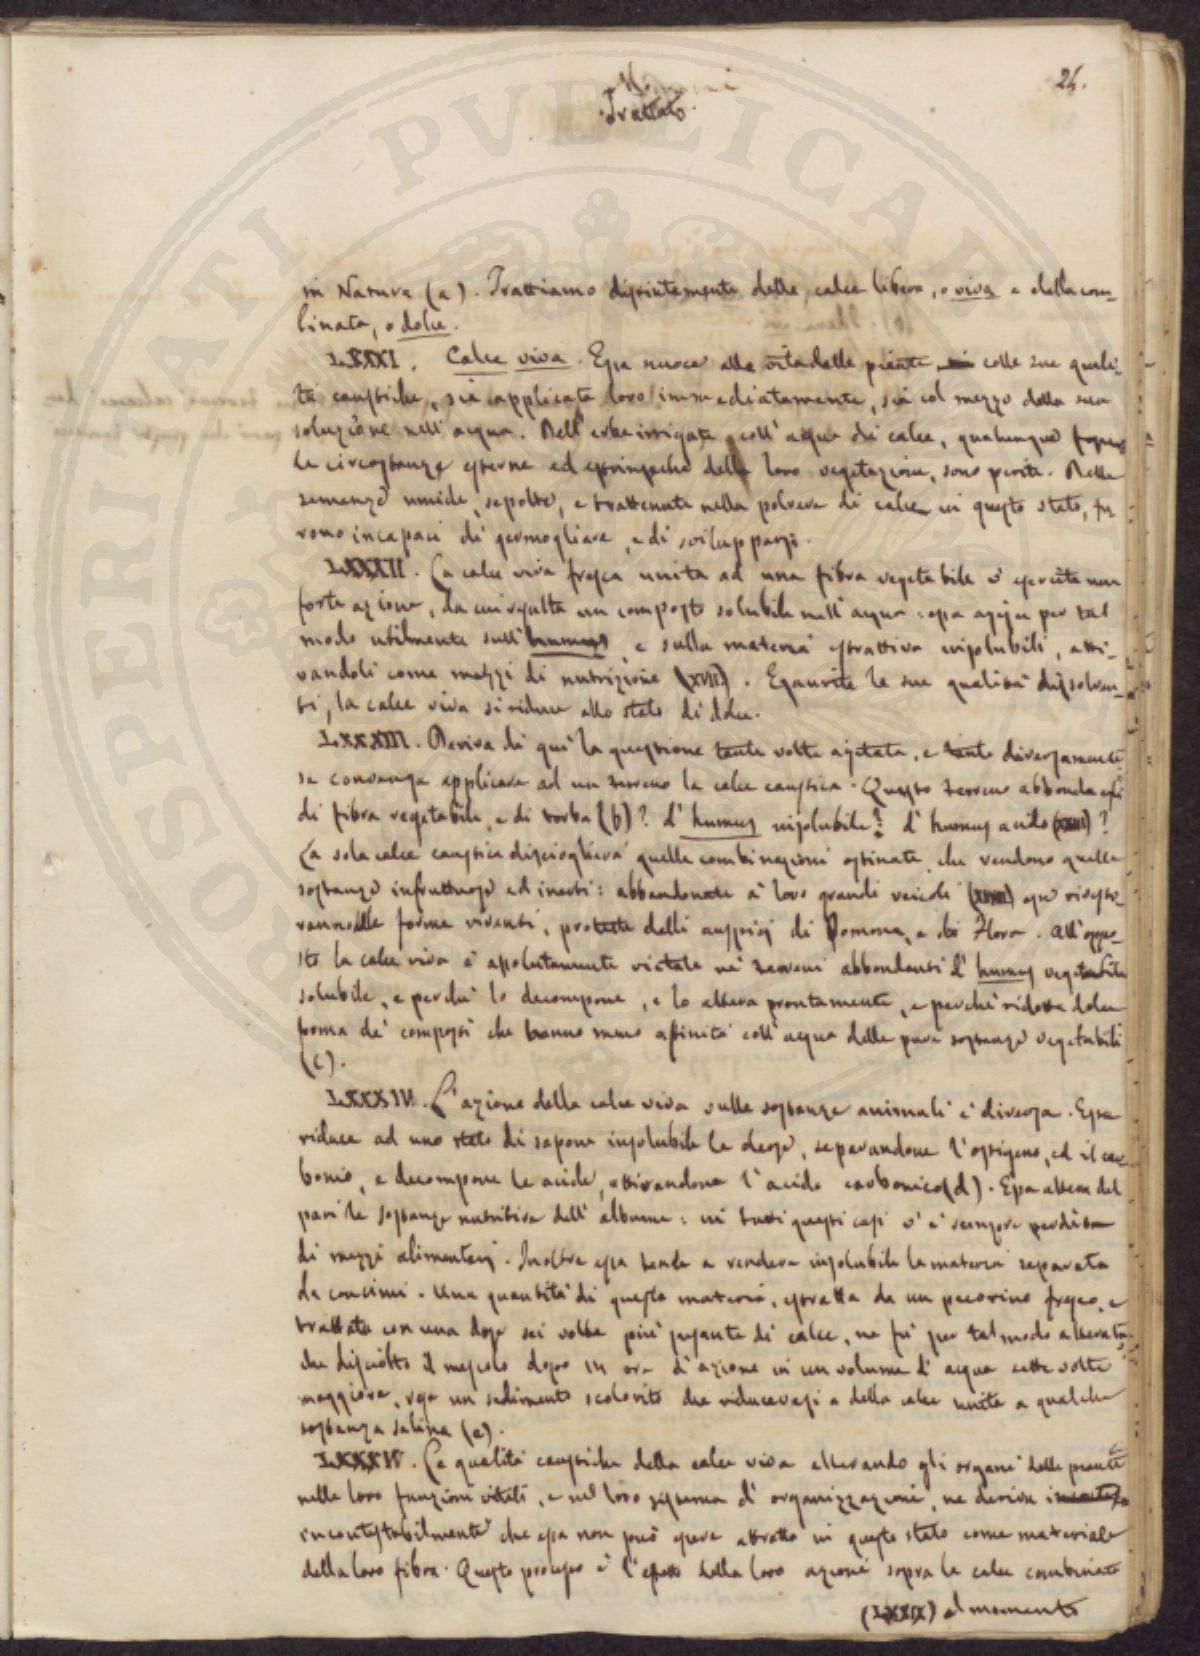 24.
Trattato
in Natura (a). Trattiamo distintamente della calce libera, o viva e della com-
binata, o dolce.
LXXXI. Calce viva. Essa nuoce alla vita delle piante colle sue quali-
tà caustiche, sia applicata loro immediatamente, sia col mezzo della sua
soluzione nell'acqua. Dell'erbe irrigate coll'acqua di calce, qualunque fossero
le circostanze esterne ed estrinseche della loro vegetazione, sono perite. Delle
semenze umide, sepolte, e trattenute nella polvere di calce in questo stato, fu-
rono incapaci di germogliare, e di svilupparsi.
LXXXII. La calce viva fresca unita ad una fibra vegetabile v'esercita una
forte azione, da cui risulta un composto solubile nell'acqua: essa agisce per tal
modo utilmente sull'humus, e sulla materia estrattiva insolubili, atti-
vandoli come mezzi di nutrizione (XVII). Esaurite le sue qualità dissolven-
ti, la calce viva si riduce allo stato di dolce.
LXXXIII. Deriva di qui la questione tante volte agitata, e tanto diversamente
se convenga applicare ad un terreno la calce caustica. Questo terreno abbonda egli
di fibra vegetabile, e di torba (b)? d'humus insolubile? d'humus acido ?
La sola calce caustica discioglierà quelle combinazioni ostinate, che rendono quelle
sostanze infruttuose ed inerti: abbandonate a' loro grandi veicoli esse rivesti-
ranno alle forme viventi, protette dalli auspicj di Pomona, e di Flora. All'oppo-
sto la calce viva è assolutamente vietata ne' terreni abbondanti d'humus vegetabile
solubile, e perchè lo decompone, e lo altera prontamente, e perchè ridotta dolce
forma de' composti che hanno meno affinità coll'acqua delle pure sostanze vegetabili
(c).
LXXXIV. L'azione della calce viva sulle sostanze animali è diversa. Essa
riduce ad uno stato di sapone insolubile le oleose, separandone l'ossigeno, ed il car-
bonio, e decompone le acide, attirandone l'acido carbonico (d). Essa altera del
pari le sostanze nutritive dell'albume: in tutti questi casi v'è sempre perdita
di mezzi alimentarj. Inoltre essa tende a rendere insolubile la materia separata
da concimi. Una quantità di questa materia, estratta da un pecorino fresco, e
trattata con una dose sei volte più pesante di calce, ne fu per tal modo alterata,
che disciolto il mescolo dopo un ora d'azione in un volume d'acqua sette volte
maggiore, rese un sedimento scolorito che riducevasi a della calce unita a qualche
sostanza salina (e).
LXXXV. Le qualità caustiche della calce viva alterando gli organi delle piante
nelle loro funzioni vitali, e nel loro sistema d'organizzazione, ne deriva
incontestabilmente che essa non può essere attratta in questo stato come materiale
della loro fibra. Questo processo è l'effetto della loro azione sopra la calce combinata
(LXXIX) al momento